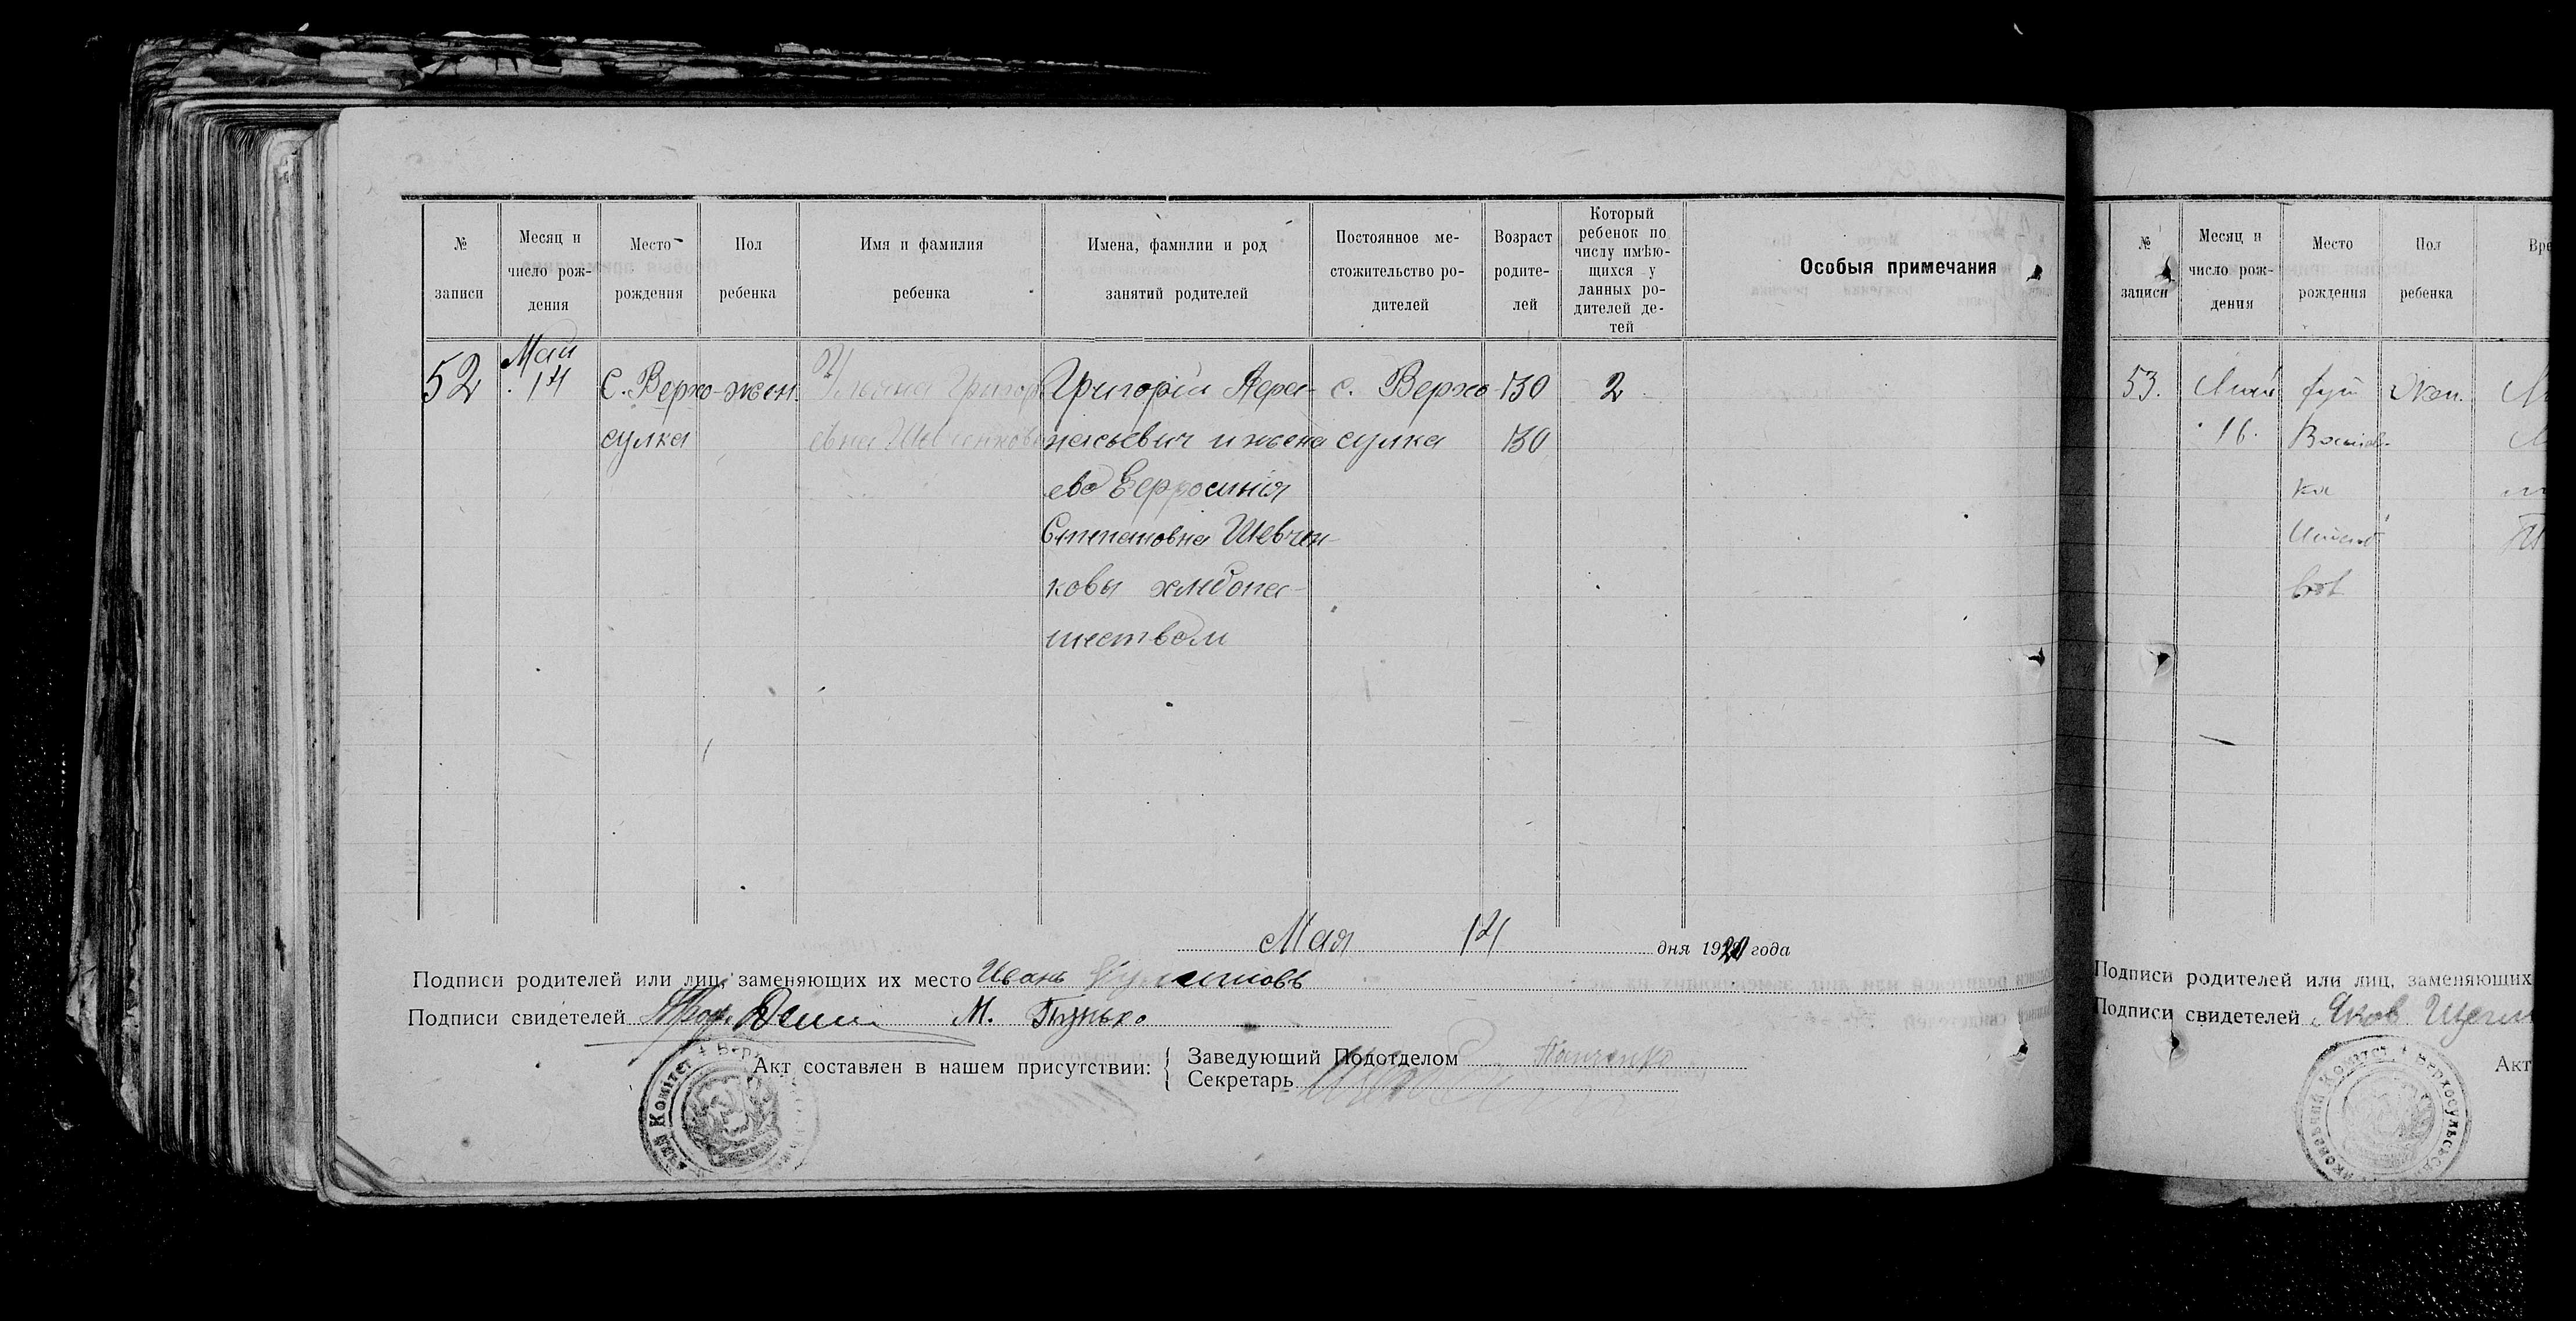 № записи
Месяц и число рождения
Место рождения
Пол ребенка
Имя и фамилия ребенка
Имена, фамилии и род занятий родителей
Постоянное местожительство родителей
Возраст родителей
Который ребенок по числу имѣющихся у данных родителей детей
Особыя примечания
52
Май
14
с. Верхо-
сулка
жен.
Григор
евна Шевченкова
Григорій Афа-
насьевич и жена
его Ефросинія
Степановна Шевчен-
ковы хлебопа-
шеством
с. Верхо
сулка
30
30
2
Мая 14 дня 1920 года
Подписи родителей или лиц, заменяющих их место Иванъ
Подписи свидетелей М. Гунько
Акт составлен в нашем присутствии:
Заведующий Подотделом Панченко
Секретарь
Комітет
№ записи
Месяц и число рождения
Место рождения
Пол ребенка
Вре
53.
Май
16.
хут
ка
Жен.
Подписи родителей или лиц, заменяющих
Подписи свидетелей Яков
Акт
Комітет * Верхосульськ